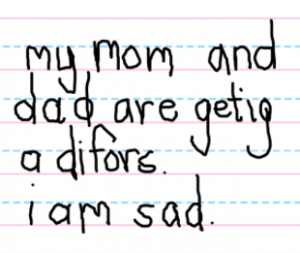 my mom and
dad are getig
a difors.
i am sad.